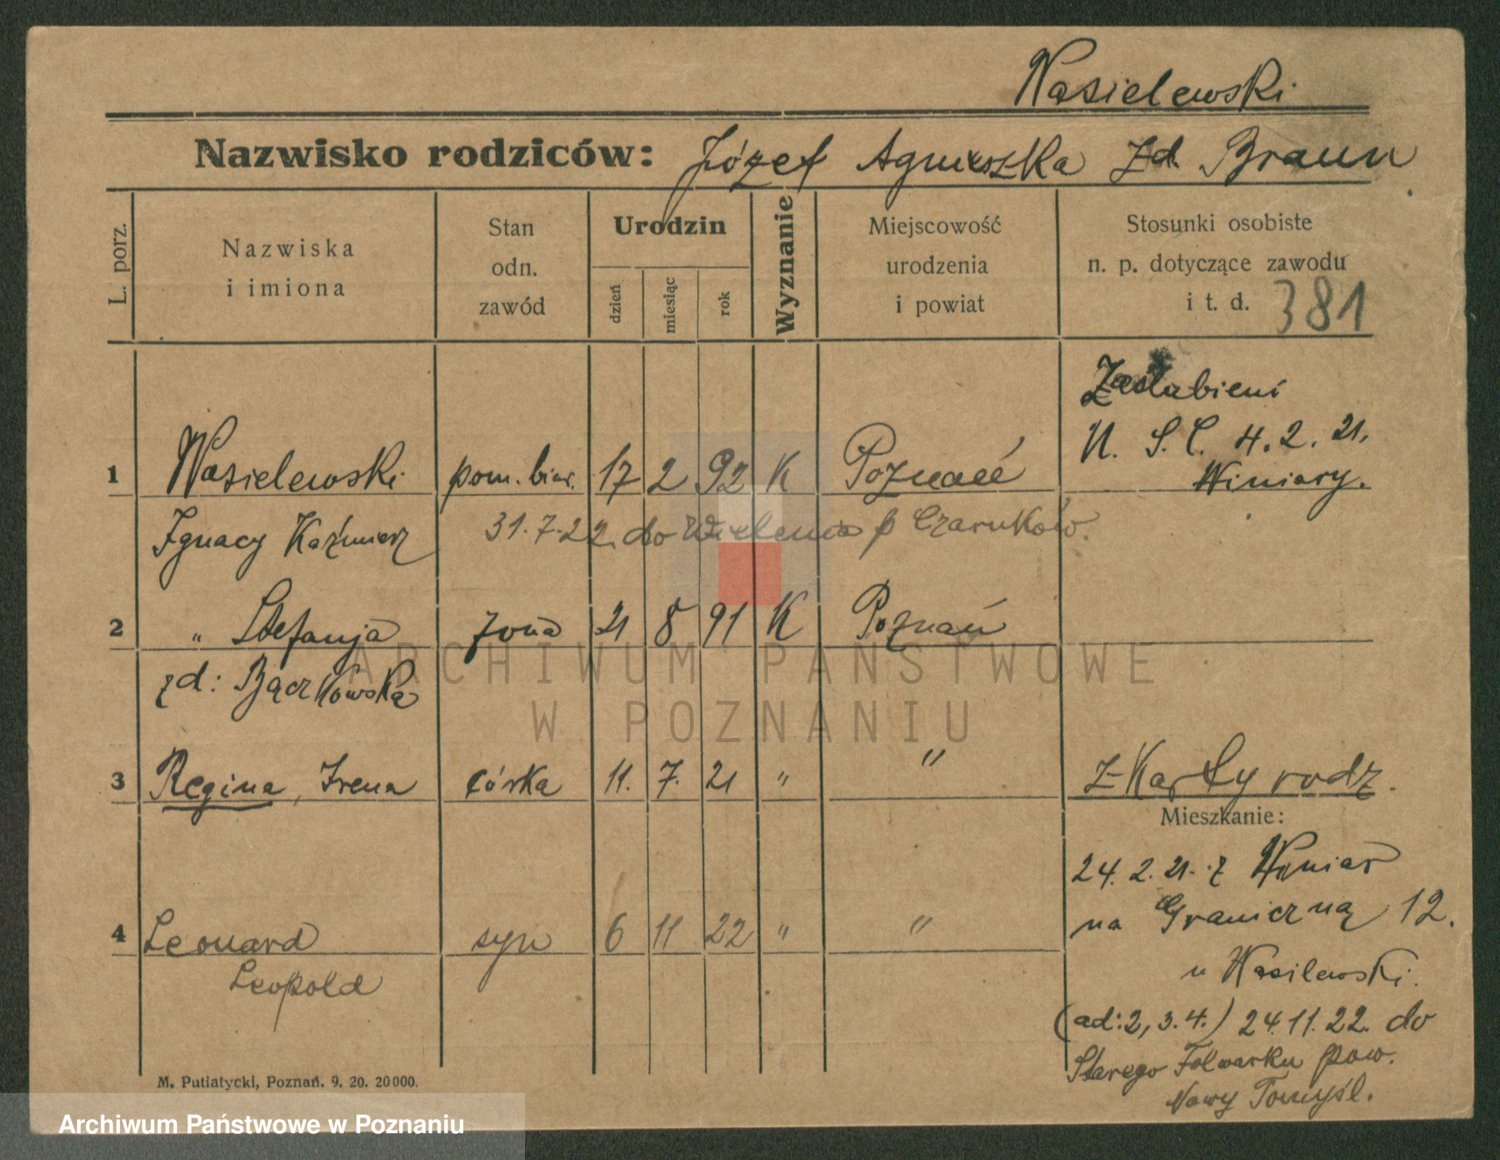 Wasielewski
Nazwisko rodziców: Józef Agnieszka zd Braun
L. porz.
Nazwiska
i imiona
Stan
odn.
zawód
Urodzin
dzień
miesiąc
rok
Wyznanie
Miejscowość
urodzenia
i powiat
Stosunki osobiste
n. p. dotyczące zawodu
i t. d.
381
Zaślubieni
U. S. C. 4. 2. 21.
Winiary.
1 Wasielewski pom. biur. 17 2 92 K Poznań
Ignacy Kaźmierz 31.7.22. do Wielenia p Czarnków.
2 " Stefanja żona 21 8 91 K Poznań
zd: Bączkowska
3 Regina, Irena córka 11. 7. 21 " "
z Karty rodz.
Mieszkanie:
24. 2. 21. z Winiar
na Graniczną 12.
u Wasilewski.
4 Leonard syn 6 11 22 " "
Leopold
(ad: 2, 3. 4.) 24.11.22. do
Starego Folwarku pow.
Nowy Tomyśl.
M. Putiatycki, Poznań. 9. 20. 20000.
ARCHIWUM PAŃSTWOWE
W POZNANIU
Archiwum Państwowe w Poznaniu